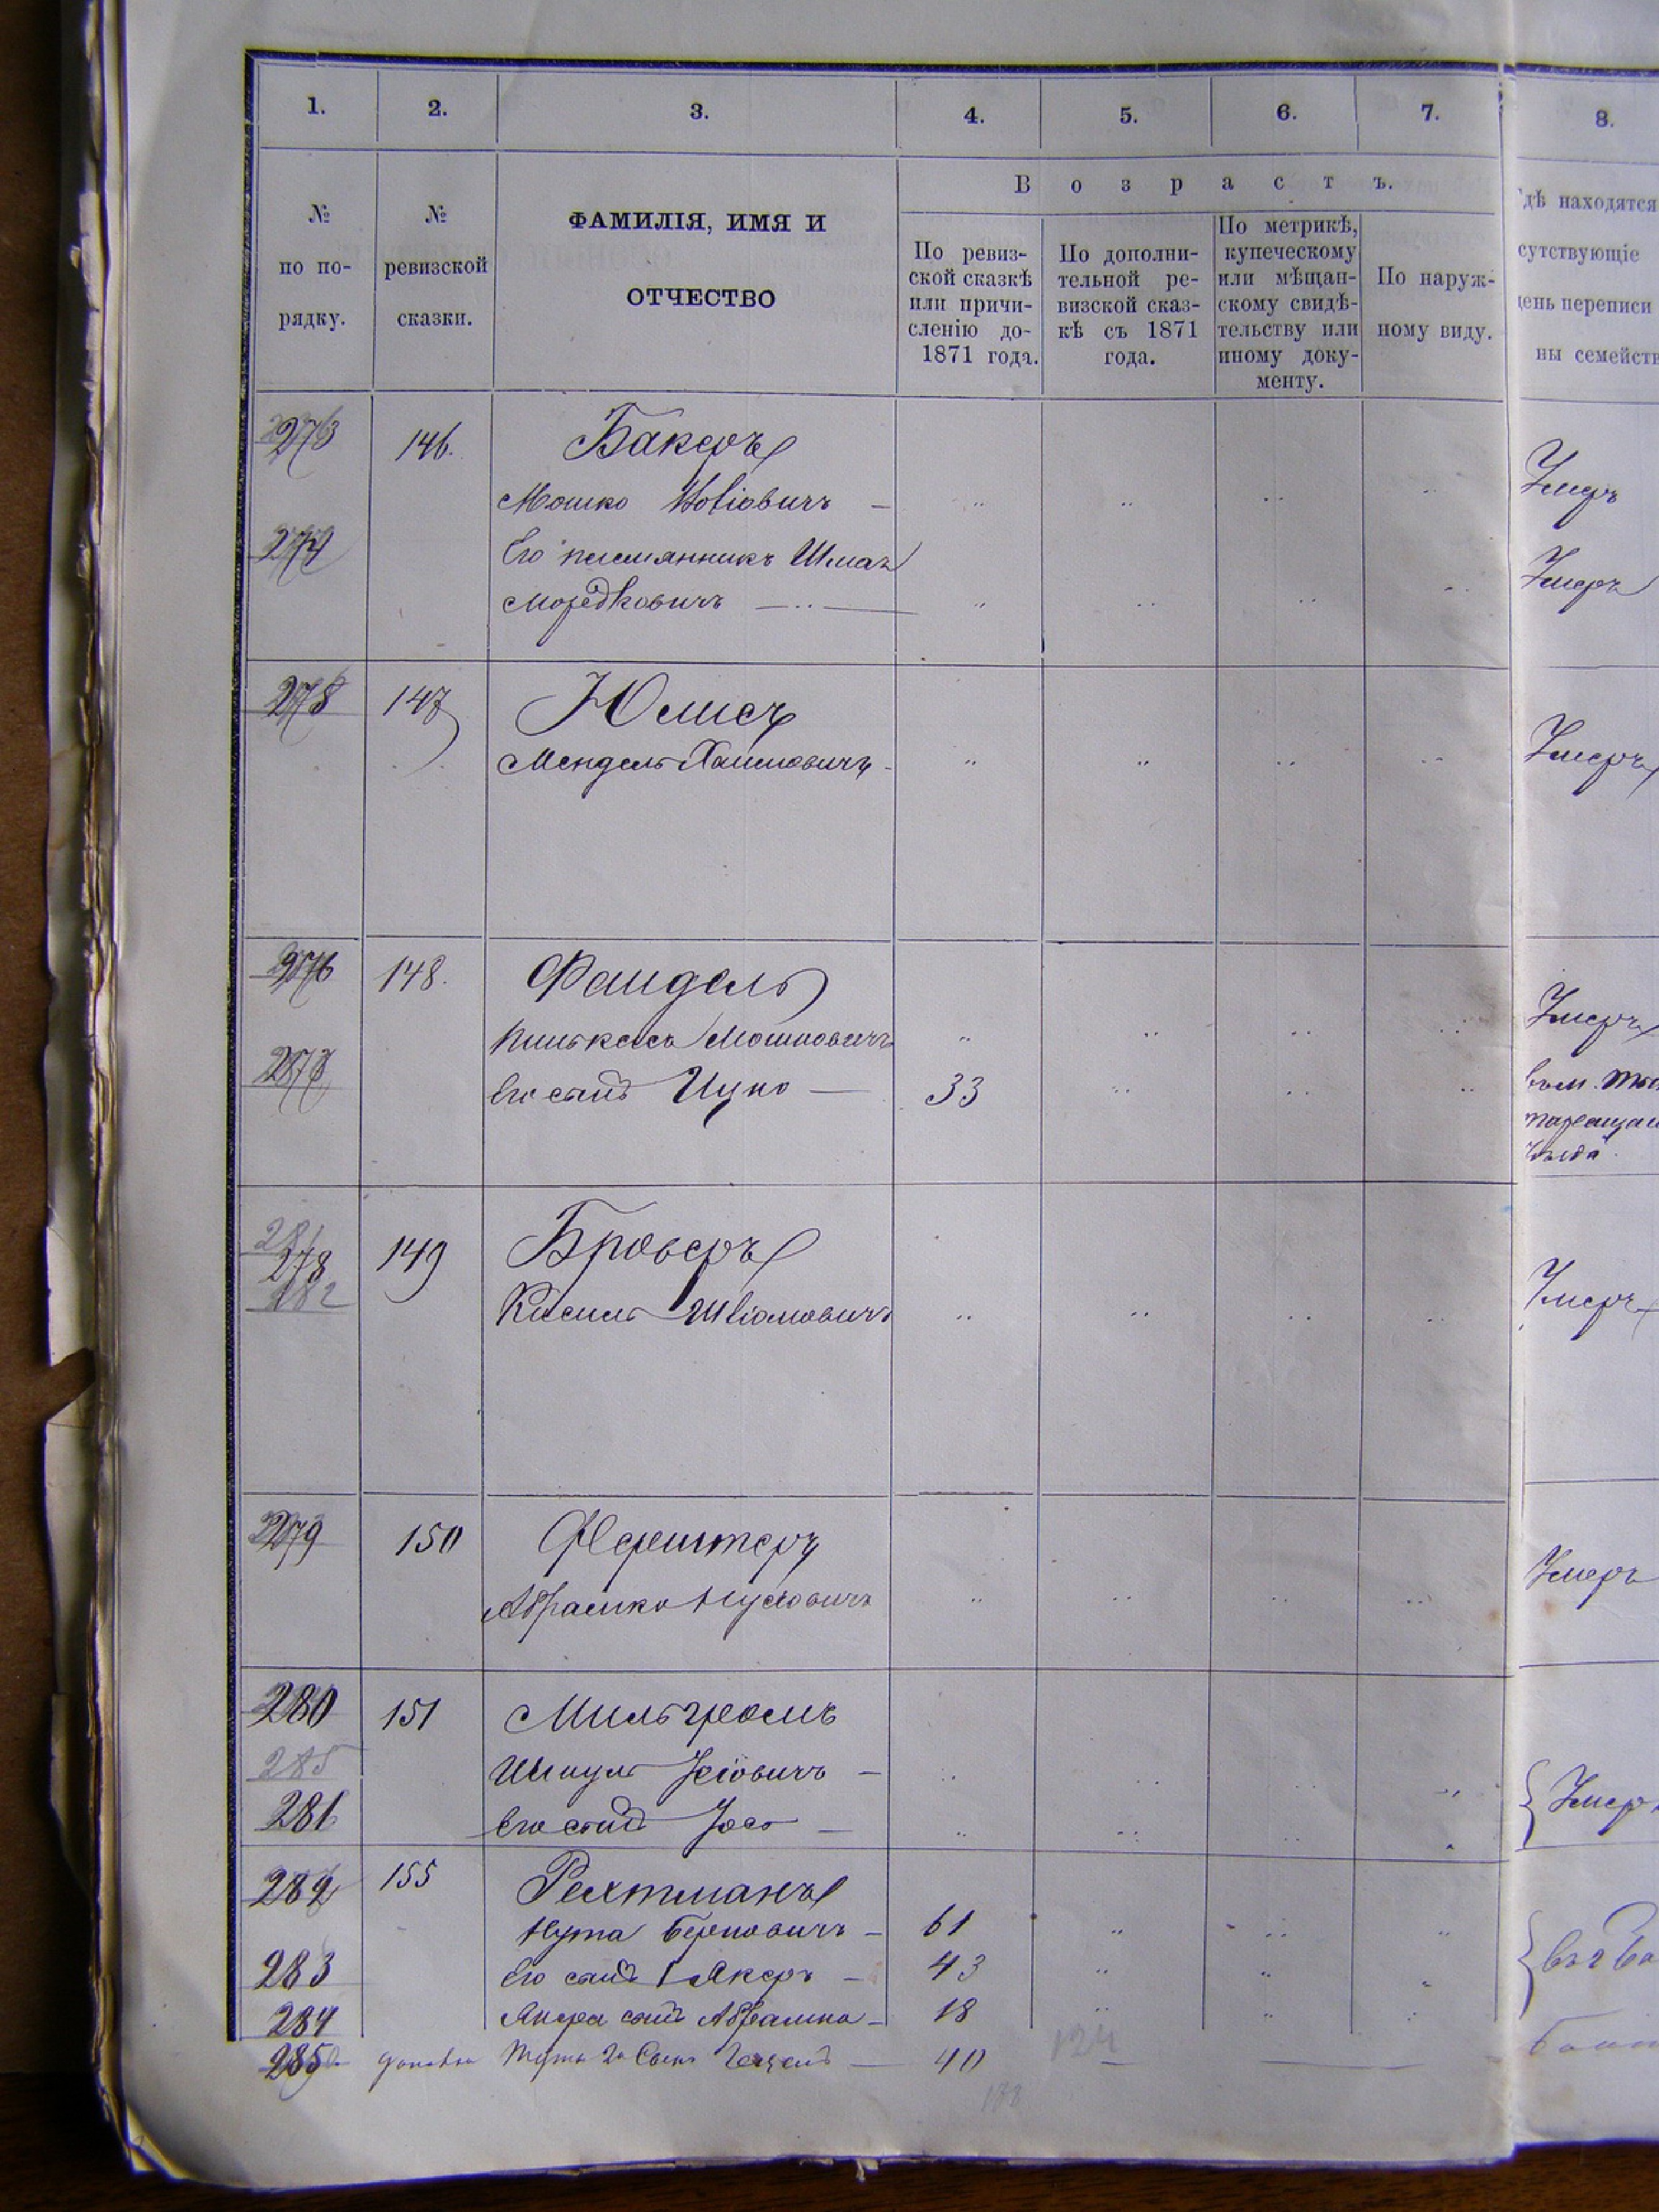 1. 2. 3. 4. 5. 6. 7. 8.
№ по по-рядку.
№ ревизской сказки.
ФАМИЛІЯ, ИМЯ И
ОТЧЕСТВО
Возрастъ.
По ревиз-
ской сказкѣ
или причи-
сленію до-
1871 года.
По дополни-
тельной ре-
визской сказ-
кѣ съ 1871
года.
По метрикѣ,
купеческому
или мѣщан-
скому свидѣ-
тельству или
иному доку-
менту.
По наруж-
ному виду.
дѣ находятся
сутствующіе
день переписи
ны семейств
273 146. Бакеръ
Мошко Умеръ
274 Его племянникъ Шмая
Мордковичъ Умеръ
275 147 Юмисъ
Мендель Хаимовичъ Умеръ
276 148. Фандель
Пинькасъ Мошковичъ Умеръ
277 Его сынъ Ицко 33
278 149 Броверъ
282
Кисиль Умеръ
279 150 Ферштеръ
Абрамко Нусовичъ Умеръ
280 151 Мильгромъ
285 Шмуль Іосіовичъ
281 Его сынъ Іось Умеръ
282 155 Рехтманъ
Нута Берковичъ 61
283 Его сынъ Анкеръ 43
284 Анкера сынъ Абрамко 18
285 Нуты 2й Сынъ 40
124